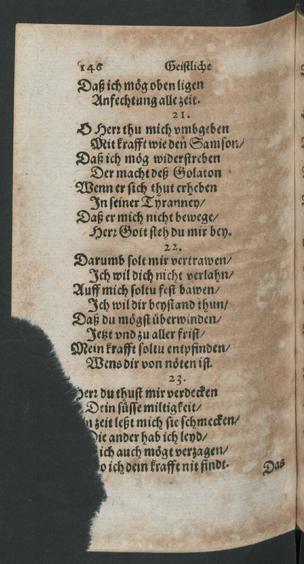 146 Geistliche
Daß ich mög oben ligen
Anfechtung alle zeit.
21.
O Herr thu mich vmbgeben
Mit krafft wie den Samson/
Daß ich mög widerstreben
Der macht deß Golaton
Wenn er sich thut erheben
In seiner Tyranney/
Daß er mich nicht bewege/
Herr Gott steh du mir bey.
22.
Darumb solt mir vertrawen/
Ich wil dich nicht verlahn/
Auff mich soltu fest bawen/
Ich wil dir beystand thun/
Daß du mögst überwinden/
Jetzt vnd zu aller frist/
Mein krafft soltu entpfinden/
Wens dir von nöten ist.
23.
Herr du thust mir verdecken
Dein süsse miltigkeit/
zeit leßt mich sie schmecken/
Die ander hab ich leyd/
ich auch mögt verzagen/
ich dein krafft nit findt.
Das